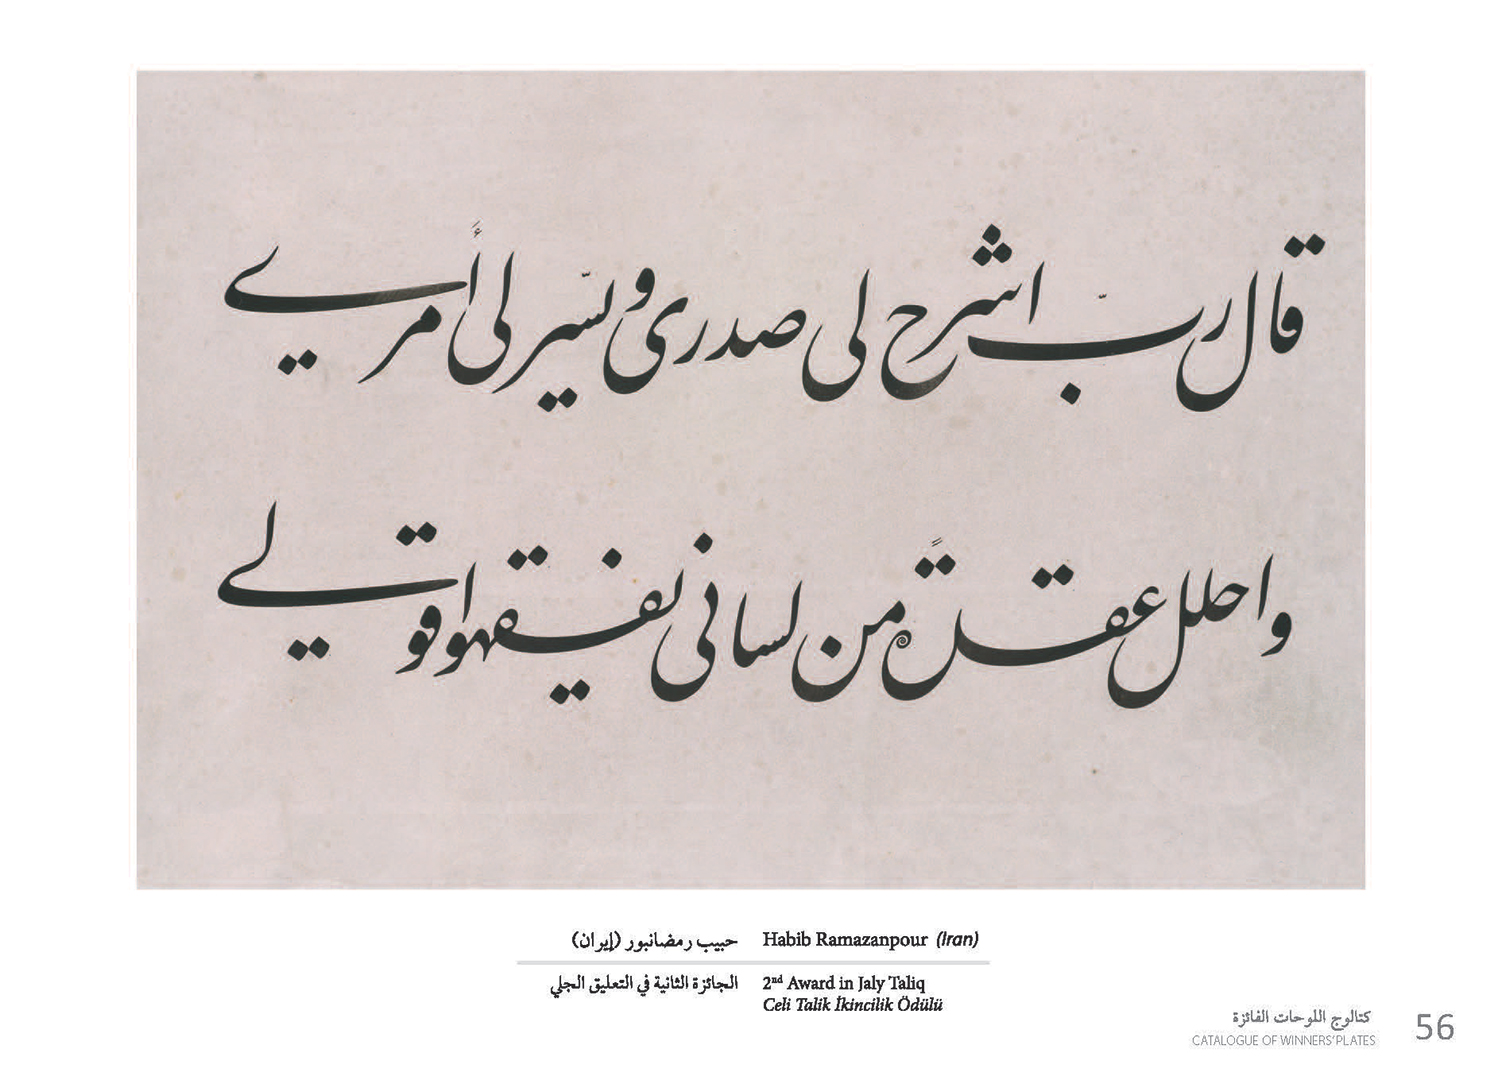 قال رب اشرح لی صدری و یسّر لی أمری
واحلل عقدةً من لسانی یفقهوا قولی
حبيب رمضانبور (إيران)
Habib Ramazanpour (Iran)
الجائزة الثانية في التعليق الجلي
2nd Award in Jaly Taliq
Celi Talik İkincilik Ödülü
كتالوج اللوحات الفائزة
CATALOGUE OF WINNERS'PLATES
56